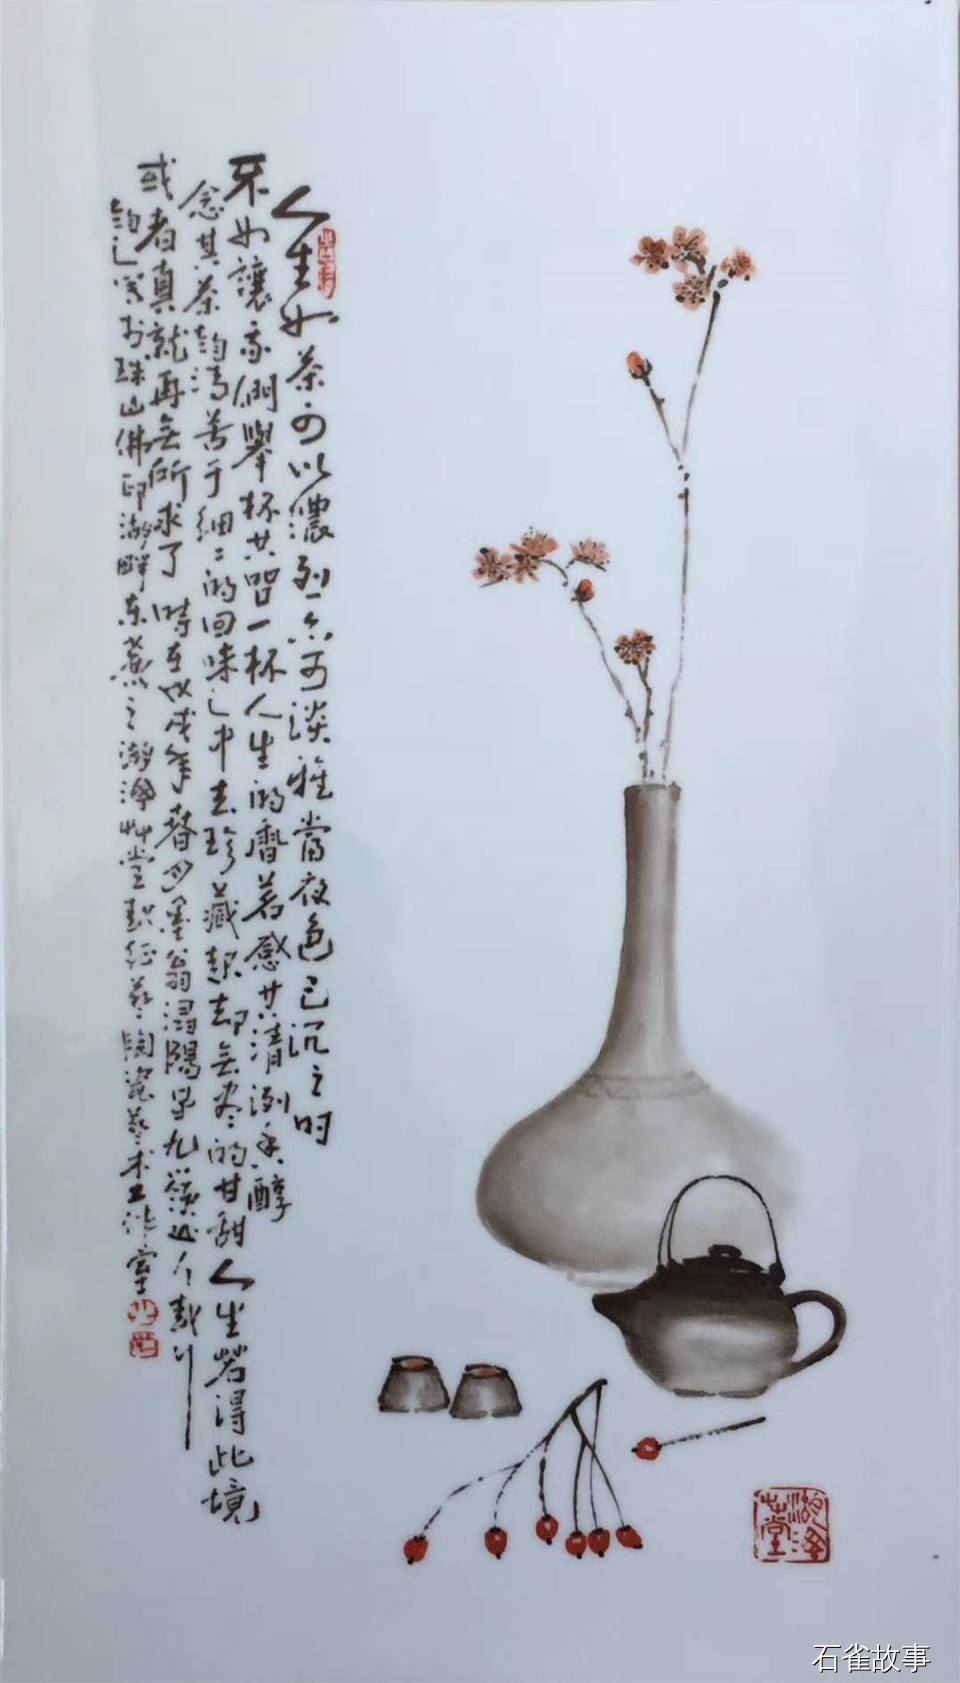 人生如茶可以濃烈亦可淡雅當夜色已沉之时
不如讓我們舉杯共品一杯人生的香茗感其清冽香醇
念其茶韵清苦于细二的回味之中去珍藏起却無尽的甘甜人生若得此境
或者真就再無所求了 時在戊戌年春月墨翁浔陽早九嶺
于珠山佛印湖畔东 之湖 草堂 艺陶瓷艺术工作室
草堂
石雀故事